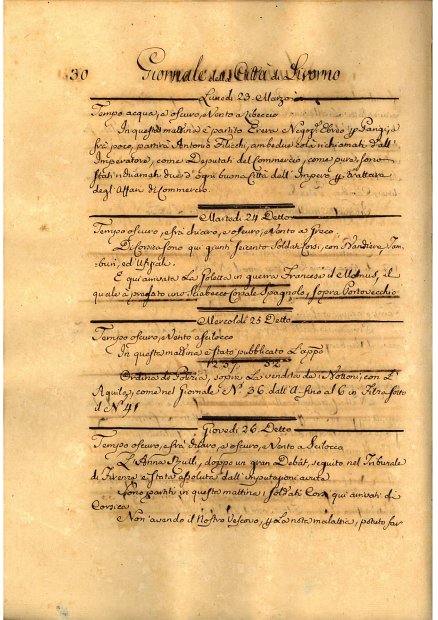 30 Giornale della Città di Livorno
Lunedi 23. Marzo
Tempo acqua, e oscuro, e Vento a libeccio
In questa mattina è partito Errera Negoz.e Ebreo p Parigi, e
frà poco, partirà Antonio Filicchi, ambedue colà richiamati dall'
Imperatore, come Deputati del Commercio, come pure sono
stati richiamati due d'ogni buona Città dell'Impero p trattare
degli Affari di Commercio.
Martedi 24 Detto
Tempo oscuro, e frà chiaro, e oscuro, e Vento a Greco
Di Corsica sono qui giunti seicento Soldati Corsi, con Bandiere Tam-
buri, ed Ufiziali.
E qui arrivata La Goletta in guerra Francese il il
quale à predato uno Sciabecco Corsale Spagnolo, sopra Portovecchio
Mercoldi 25 Detto
Tempo oscuro, e Vento a Scilocco
In questa mattina è stato pubblicato L'app.o
Ordine di Polizia, sopra La vendita de con L'
Aquila, come nel Giornale N° 36 dall'A fino al 6 in Filza sotto
il N° 41
Giovedi 26. Detto
Tempo oscuro, e frà chiaro, e oscuro, e Vento a Scilocco
L'Anna doppo un gran seguito nel Tribunale
di Firenze è stata assoluta dall'Imputazioni avute
Sono partiti in questa mattina i Soldati Corsi qui arrivati di
Corsica
Non avendo il Nostro Vescovo, p La nota malattia, potuto far